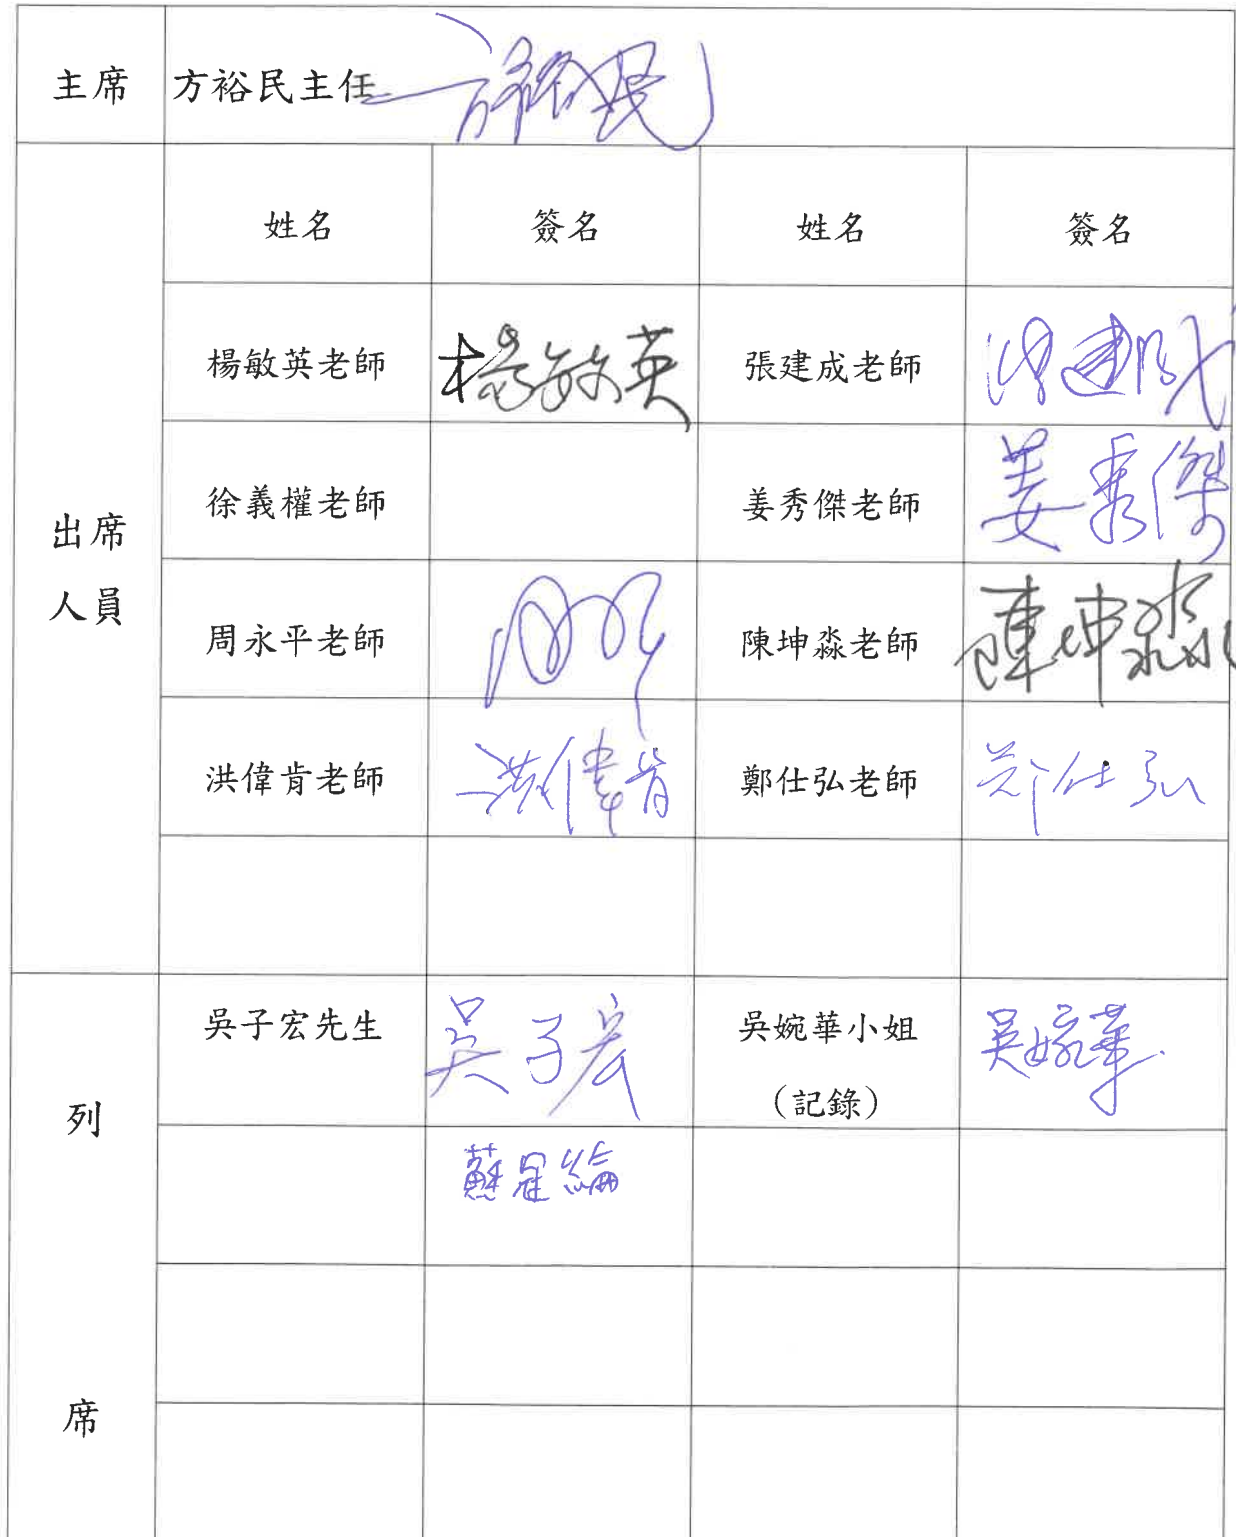 主席 方裕民主任 方裕民
姓名 簽名 姓名 簽名
楊敏英老師 楊敏英 張建成老師 張建成
徐義權老師 姜秀傑老師 姜秀傑
出席
人員
周永平老師 陳坤淼老師 陳坤淼
洪偉肯老師 洪偉肯 鄭仕弘老師 鄭仕弘
吳子宏先生 吳子宏 吳婉華小姐 吳婉華
(記錄)
列
蘇星綸
席